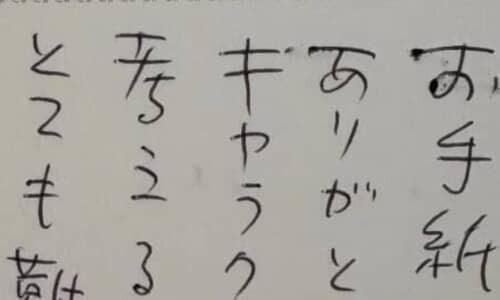 お手紙
ありがと
キャラク
考える
とても